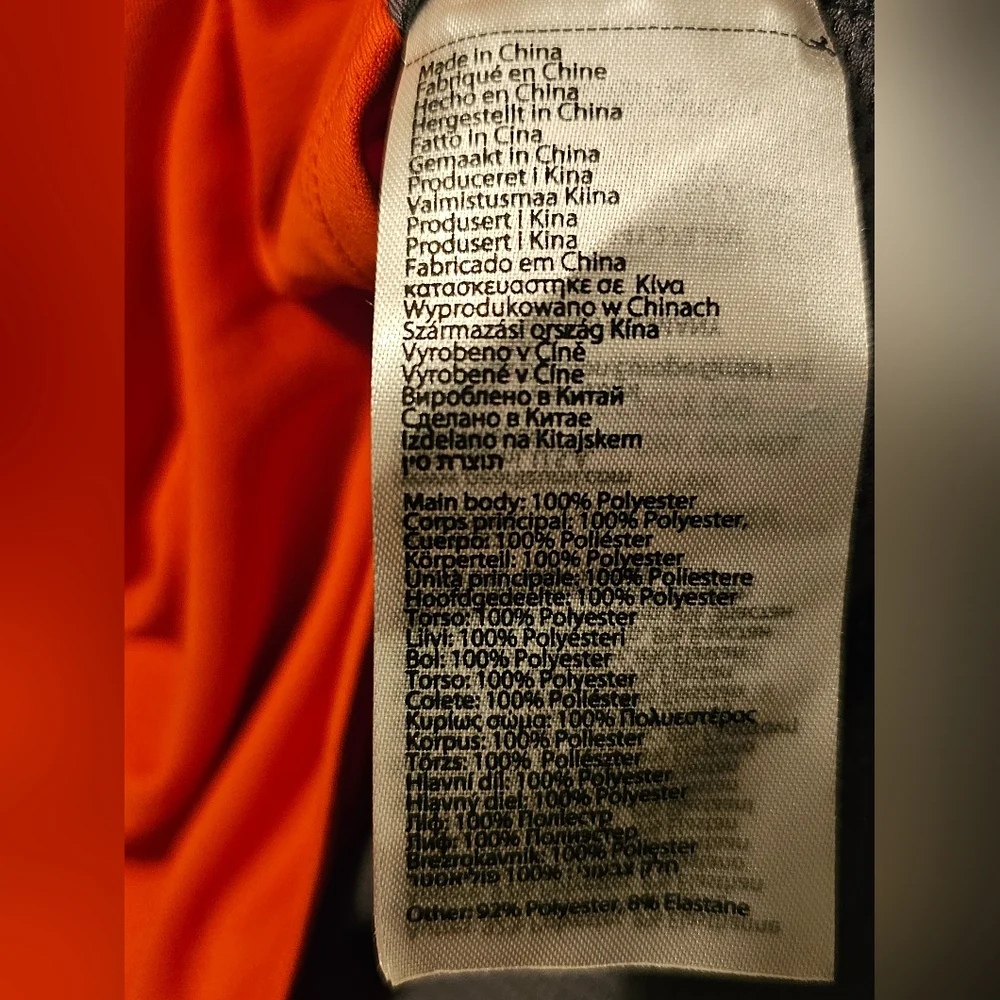 Made in China
Fabriqué en Chine
Hecho en China
Hergestellt in China
Fatto in Cina
Gemaakt in China
Produceret i Kina
Valmistusmaa Kiina
Produsert i Kina
Produsert i Kina
Fabricado em China
κατασκευαστηκε σε Κίνα
Wyprodukowano w Chinach
Származási ország Kína
Vyrobeno v Číně
Vyrobené v Číne
Вироблено в Китай
Сделано в Китае
Izdelano na Kitajskem
תוצרת סין
Main body: 100% Polyester
Corps principal: 100% Polyester,
Cuerpo: 100% Poliéster
Körperteil: 100% Polyester
Unità principale: 100% Poliestere
Hoofdgedeelte: 100% Polyester
Torso: 100% Polyester
Liivi: 100% Polyesteri
Bol: 100% Polyester
Torso: 100% Polyester
Colete: 100% Poliéster
Κυρίως σώμα: 100% Πολυεστέρας
Korpus: 100% Poliester
Törzs: 100% Poliészter
Hlavní díl: 100% Polyester
Hlavný diel: 100% Polyester
Ліф: 100% Поліестр
Лиф: 100% Полиэстер
Brezrokavnik: 100% Poliester
חלק צבעוני: 100% פוליאסטר
Other: 92% Polyester, 8% Elastane